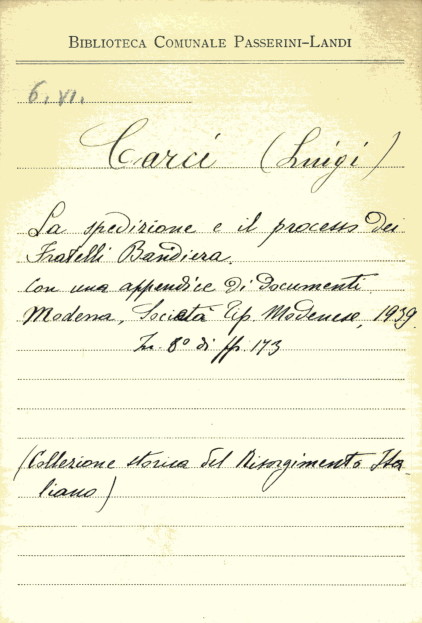 BIBLIOTECA COMUNALE PASSERINI-LANDI
6. VI.
Carci (Luigi)
La spedizione e il processo dei
Fratelli Bandiera.
con una appendice di documenti.
Modena, Società Tip. Modenese, 1939.
In 8º di pp. 173
(Collezione storica del Risorgimento Ita-
liano)